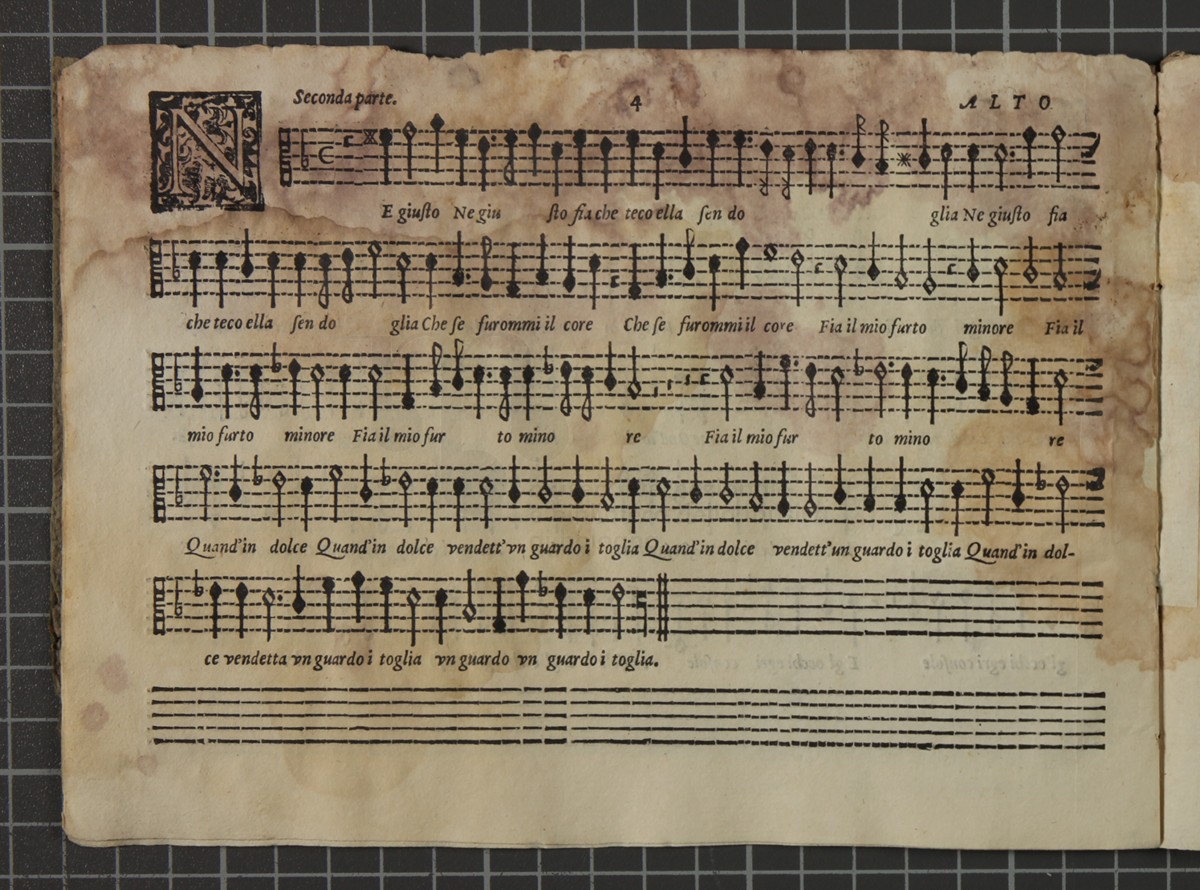 Seconda parte. 4 ALTO
NE giusto Ne giu sto fia che teco ella sen do glia Ne giusto fia
che teco ella sen do glia Che se furommi il core Che se furommi il core Fia il mio furto minore Fia il
mio furto minore Fia il mio fur to mino re Fia il mio fur to mino re
Quand'in dolce Quand'in dolce vendett'vn guardo i toglia Quand'in dolce vendett'un guardo i toglia Quand'in dol-
ce vendetta vn guardo i toglia vn guardo vn guardo i toglia.